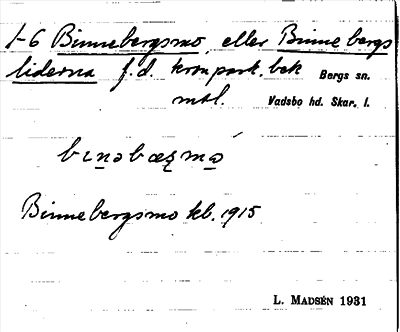 1-6 Binnebergsmo, eller Binnebergs
liderna f.d. kronpark, bek
Bergs sn.
mtl. Vadsbo hd. Skar. l.
bɩnəbæʐmꙍ
Binnebergsmo kb. 1915
L. MADSÉN 1931